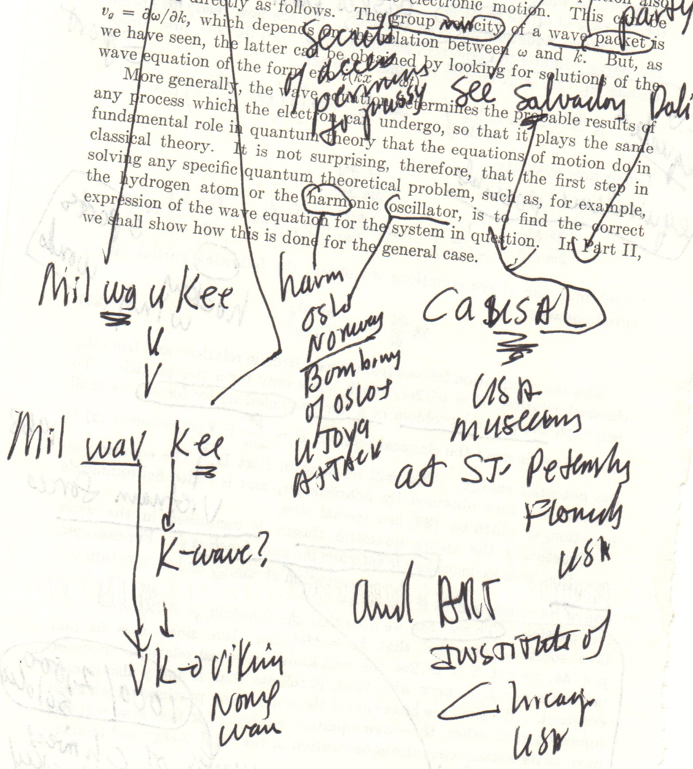 directly as follows. The group velocity of a wave packet is
v₀ = ∂ω/∂k, which depends on the relation between ω and k. But, as
we have seen, the latter can be obtained by looking for solutions of the
wave equation of the form
More generally, the wave equation determines the probable results of
any process which the electron can undergo, so that it plays the same
fundamental role in quantum theory that the equations of motion do in
classical theory. It is not surprising, therefore, that the first step in
solving any specific quantum theoretical problem, such as, for example,
the hydrogen atom or the harmonic oscillator, is to find the correct
expression of the wave equation for the system in question. In Part II,
we shall show how this is done for the general case.
party
See Salvador Dali
Mil wa u Kee
u
V
Mil wav Kee
K-wave?
VK → Viking
harm
oslo
Norway
Bombing
of oslo +
uToya
ATTACK
CaUSAL
USA
museum
at ST. Petersburg
Florida
USA
and ART
Institute of
Chicago
USA